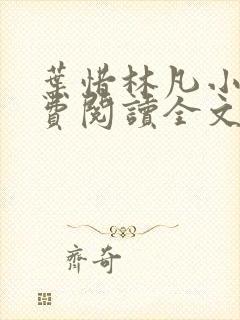 葉惜林凡小
費閱讀全文
齊奇